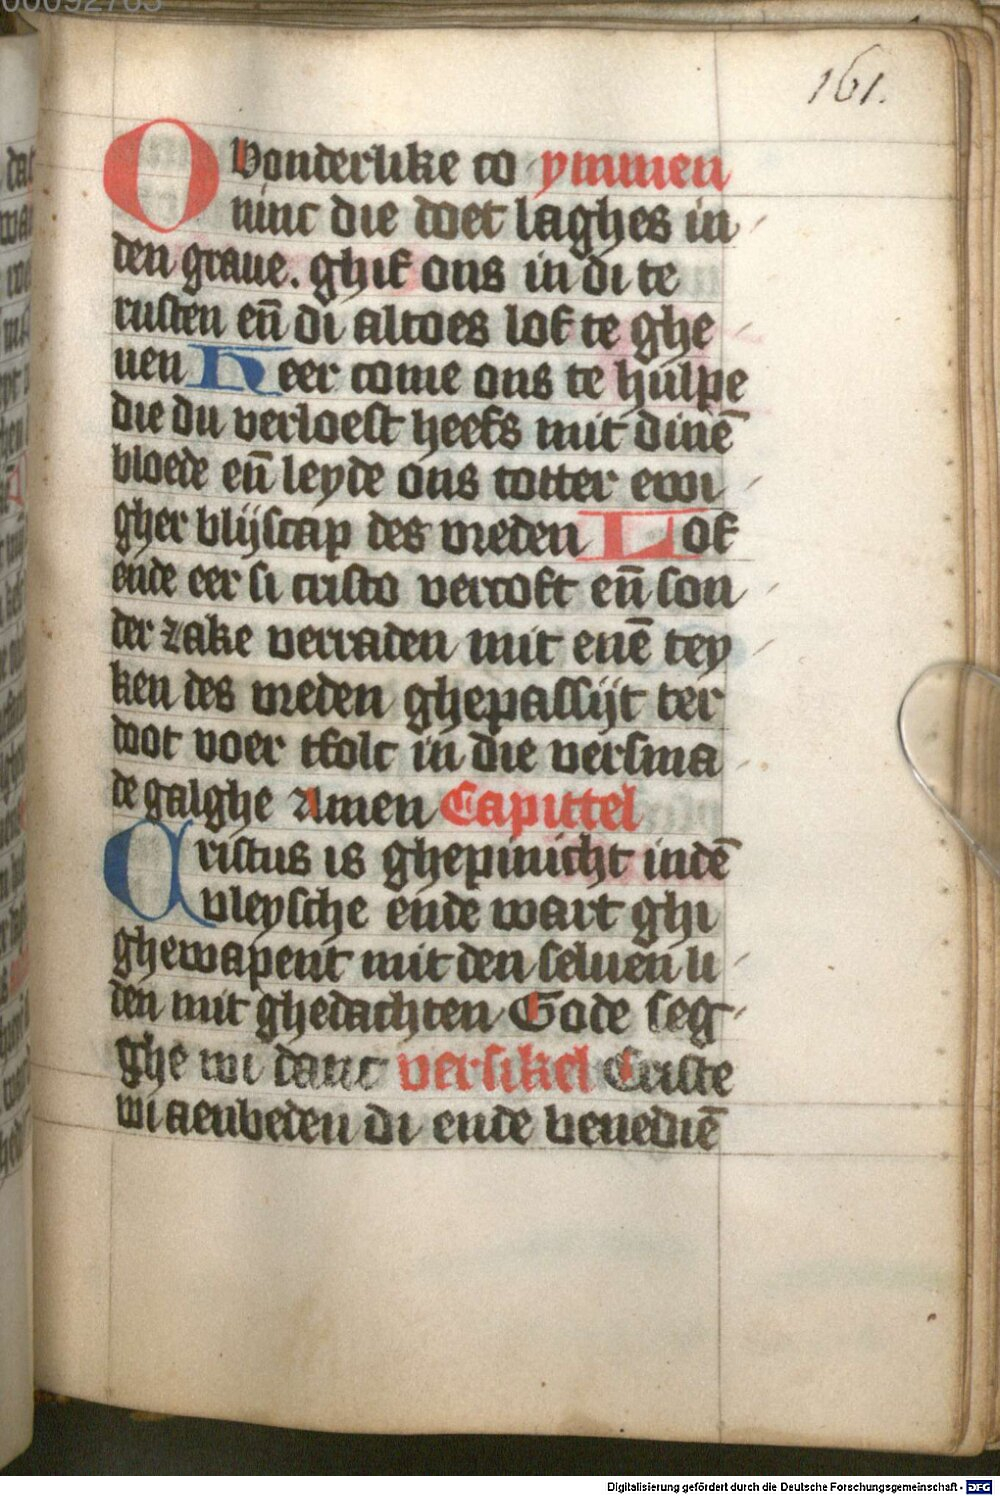 00092765
161.
O Wonderlike co ymmen
ninc die doet laghes in
den graue. ghif ons in di te
rusten en̄ di altoes lof te ghe
uen Heer come ons te hulpe
die du verloest heefs mit dinē
bloede en̄ leyde ons totter ewi
gher blijscap des vreden Lof
ende eer si cristo vercoft en̄ son
der zake verraden mit enē tey
ken des vreden ghepassijt ter
doot voer tfolc in die versma
de galghe Amen Capittel
Cristus is ghepinicht indē
vleysche ende wart ghi
ghewapent mit den seluen li
den mit ghedachten Gode seg
ghe wi danc versikel Criste
wi aenbeden di ende benediē
Digitalisierung gefördert durch die Deutsche Forschungsgemeinschaft - DFG